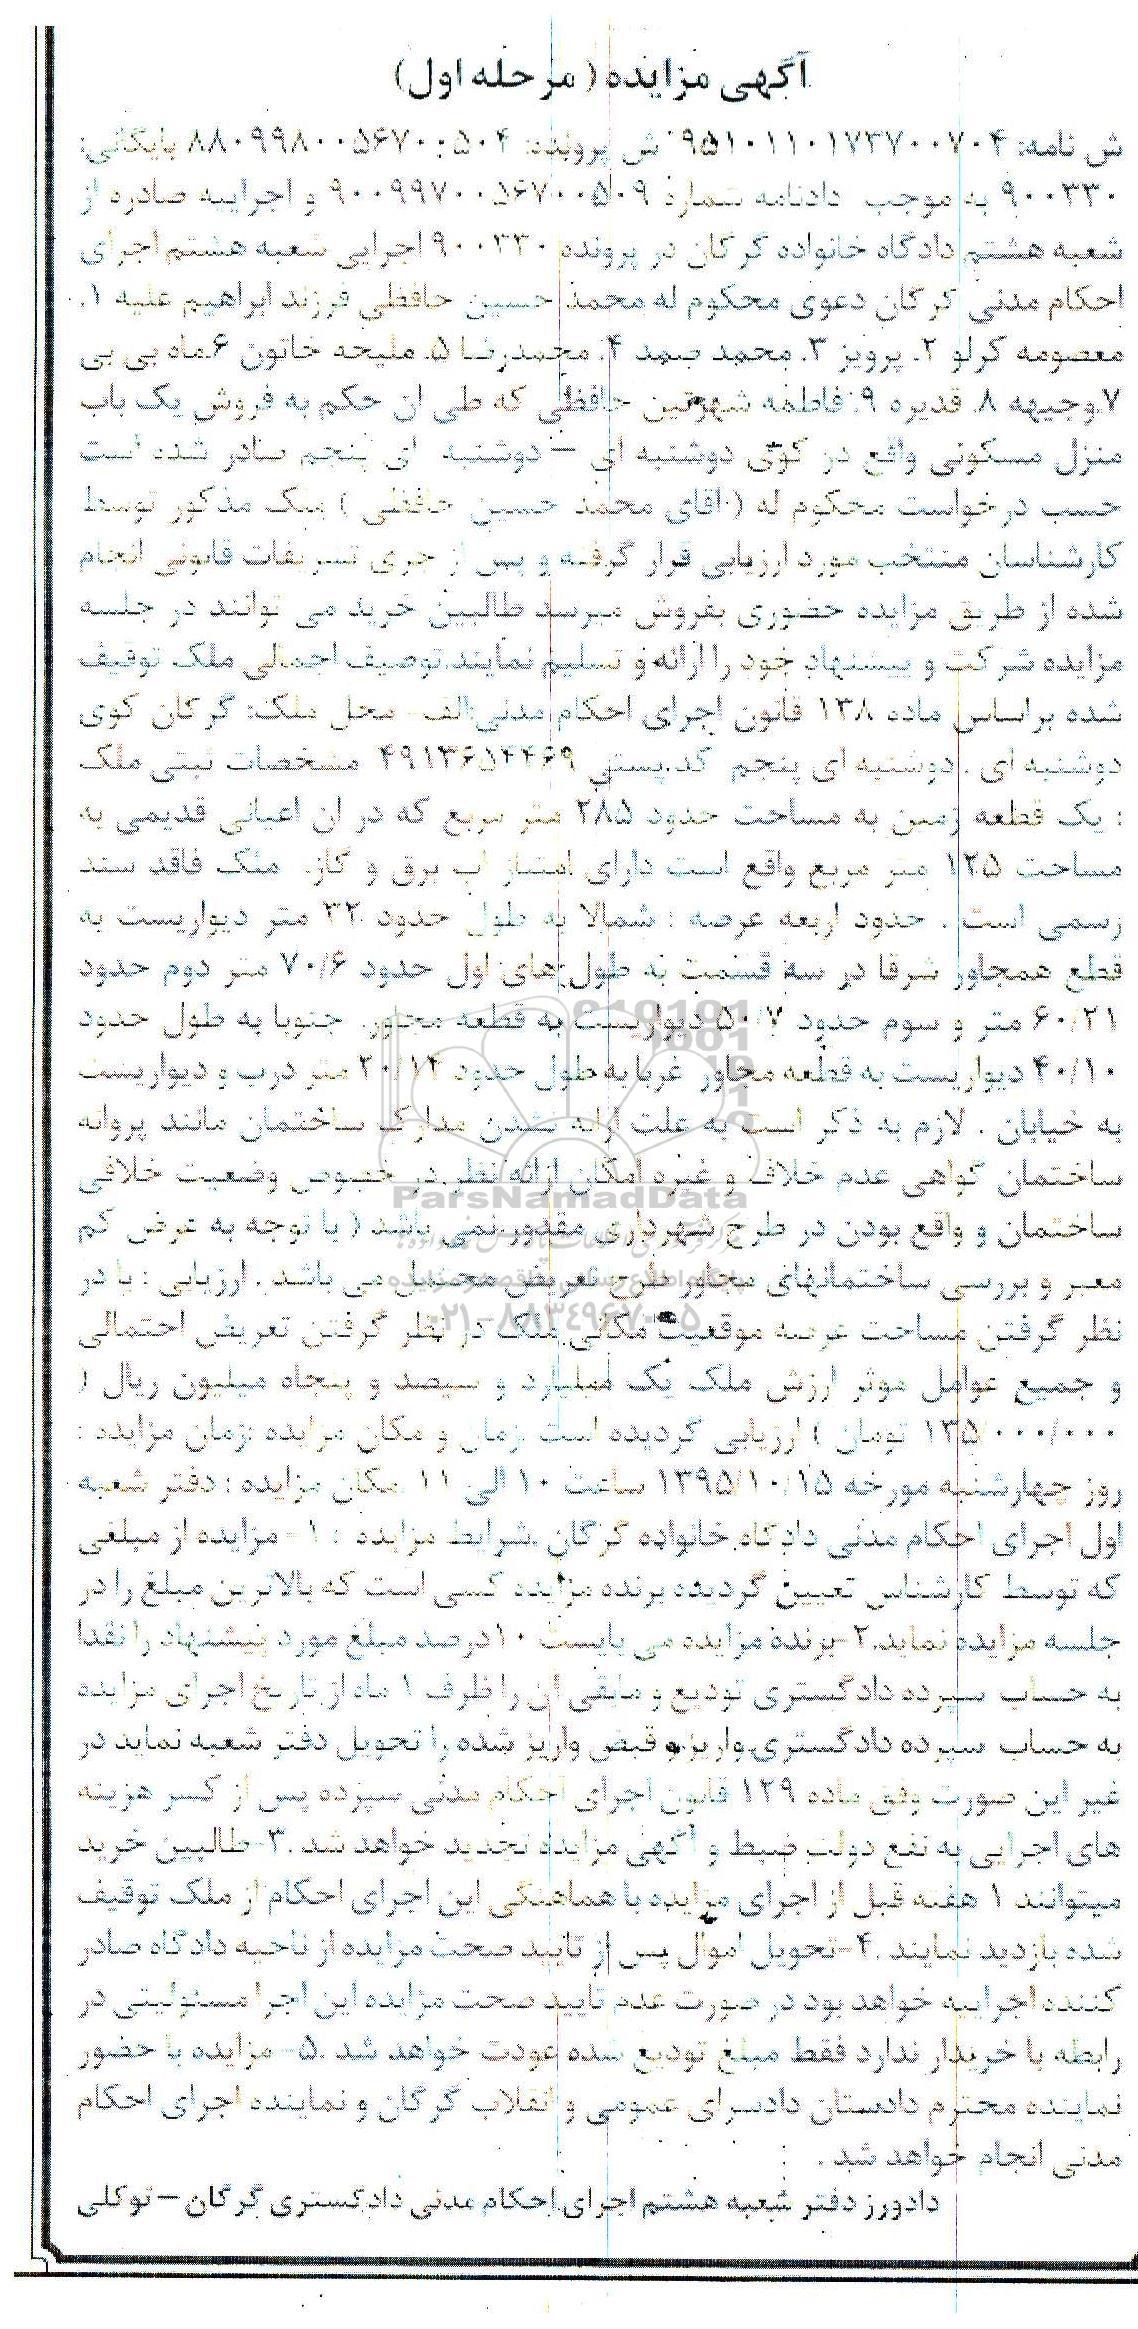 آگهی مزایده ( مرحله اول)
ش نامه: ۹۵۱۰۱۱۰۱۷۳۷۰۰۷۰۴ ش پرونده: ۸۸۰۹۹۸۰۰۵۶۷۰۰۵۰۴ بایگانی:
۹۰۰۳۳۰ به موجب دادنامه شماره ۹۰۰۹۹۷۰۰۵۶۷۰۰۵۰۹ و اجراییه صادره از
شعبه هشتم دادگاه خانواده گرگان در پرونده ۹۰۰۳۳۰ اجرایی شعبه هشتم اجرای
احکام مدنی گرگان دعوی محکوم له محمد حسین حافظی فرزند ابراهیم علیه ۱.
معصومه کرلو ۲. پرویز ۳. محمد صمد ۴. محمدرضا ۵. ملیحه خاتون ۶.ماه بی بی
۷.وجیهه ۸. قدیره ۹. فاطمه شهرتین حافظی که طی ان حکم به فروش یک باب
منزل مسکونی واقع در کوی دوشنبه ای – دوشنبه ای پنجم صادر شده است
حسب درخواست محکوم له ( اقای محمد حسین حافظی ) ملک مذکور توسط
کارشناسان منتخب مورد ارزیابی قرار گرفته و پس از جری تشریفات قانونی انجام
شده از طریق مزایده حضوری بفروش میرسد طالبین خرید می توانند در جلسه
مزایده شرکت و پیشنهاد خود را ارائه و تسلیم نمایند.توصیف اجمالی ملک توقیف
شده براساس ماده ۱۳۸ قانون اجرای احکام مدنی:الف- محل ملک: گرگان کوی
دوشنبه ای . دوشنبه ای پنجم کد پستی ۴۹۱۳۶۵۴۴۶۹ مشخصات ثبتی ملک
: یک قطعه زمین به مساحت حدود ۲۸۵ متر مربع که در ان اعیانی قدیمی به
مساحت ۱۲۵ متر مربع واقع است دارای امتیاز اب برق و گاز. ملک فاقد سند
رسمی است . حدود اربعه عرصه : شمالا به طول حدود ۳۲ متر دیواریست به
قطع همجاور شرقا در سه قسمت به طول های اول حدود ۷۰/۶ متر دوم حدود
۶۰/۲۱ متر و سوم حدود ۵۰/۷ دیواریست به قطعه مجاور. جنوبا به طول حدود
۴۰/۱۰ دیواریست به قطعه مجاور غربا به طول حدود ۲۰/۱۴ متر درب و دیواریست
به خیابان . لازم به ذکر است به علت ارائه نشدن مدارک ساختمان مانند پروانه
ساختمان گواهی عدم خلاف و غیره امکان ارائه نظر در خصوص وضعیت خلافی
ParsNamadData
ساختمان و واقع بودن در طرح شهرداری مقدور نمی باشد ( با توجه به عرض کم
معبر و بررسی ساختمانهای مجاور طرح تعریض محتمل می باشد . ارزیابی : با در
پایگاه اطلاع رسانی مناقصه و مزایده
نظر گرفتن مساحت عرصه موقعیت مکانی ملک در نظر گرفتن تعریض احتمالی
۰۲۱-۸۸۳۴۹۶۷۰-۵
و جمیع عوامل موثر ارزش ملک یک میلیارد و سیصد و پنجاه میلیون ریال (
۱۳۵/۰۰۰/۰۰۰ تومان ) ارزیابی گردیده است .زمان و مکان مزایده :زمان مزایده :
روز چهارشنبه مورخه ۱۳۹۵/۱۰/۱۵ ساعت ۱۰ الی ۱۱ .مکان مزایده : دفتر شعبه
اول اجرای احکام مدنی دادگاه خانواده گرگان .شرایط مزایده : ۱- مزایده از مبلغی
که توسط کارشناس تعیین گردیده برنده مزایده کسی است که بالاترین مبلغ را در
جلسه مزایده نماید.۲-برنده مزایده می بایست ۱۰درصد مبلغ مورد پیشنهاد را نقدا
به حساب سپرده دادگستری تودیع و مابقی ان را ظرف ۱ ماه از تاریخ اجرای مزایده
به حساب سپرده دادگستری واریز و قبض واریز شده را تحویل دفتر شعبه نماید در
غیر این صورت وفق ماده ۱۲۹ قانون اجرای احکام مدنی سپرده پس از کسر هزینه
های اجرایی به نفع دولت ضبط و آگهی مزایده تجدید خواهد شد .۳-طالبین خرید
میتوانند ۱ هفته قبل از اجرای مزایده با هماهنگی این اجرای احکام از ملک توقیف
شده بازدید نمایند .۴-تحویل اموال پس از تایید صحت مزایده از ناحیه دادگاه صادر
کننده اجراییه خواهد بود در صورت عدم تایید صحت مزایده این اجرا مسئولیتی در
رابطه با خریدار ندارد فقط مبلغ تودیع شده عودت خواهد شد .۵- مزایده با حضور
نماینده محترم دادستان دادسرای عمومی و انقلاب گرگان و نماینده اجرای احکام
مدنی انجام خواهد شد .
دادورز دفتر شعبه هشتم اجرای احکام مدنی دادگستری گرگان – توکلی